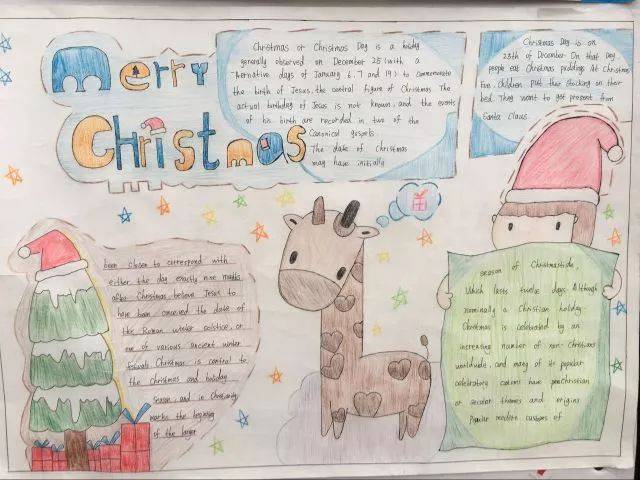 Merry
Christmas
Christmas or Christmas Day is a holiday
generally observed on December 25 (with a
Thernative days of January 6. 7 and 19) to commemorate
the birth of Jesus. the central figure of Christmas The
actual birthday of Jesus is not known. and the events
of his birth are recorded in two of the
Canonical gospels
The date of Christmas
may have initially
Christmas Day is on
25th of December On that Day
people eat Christmas puddings At Christmas
Eve. Children put their stocking on their
bed. They want to get present from
Santa Claus
been chosen to correspond with
either the day exactly nine months
after Christmas believe Jesus to
have been conceived the date of
the Roman winter solstice. or
one of various ancient winter
festivals Christmas is central to
the Christmas and holiday
season. and in Christianity
marks the beginning
of the larger
season of Christmastide,
Which lasts twelve days. Although
nominally a Christian holiday.
Christmas is celebrated by an
increasing number of non-Christians
worldwide, and many of its popular
celebratory customs have prechristian
or secular themes and origins
Popular modern customs of